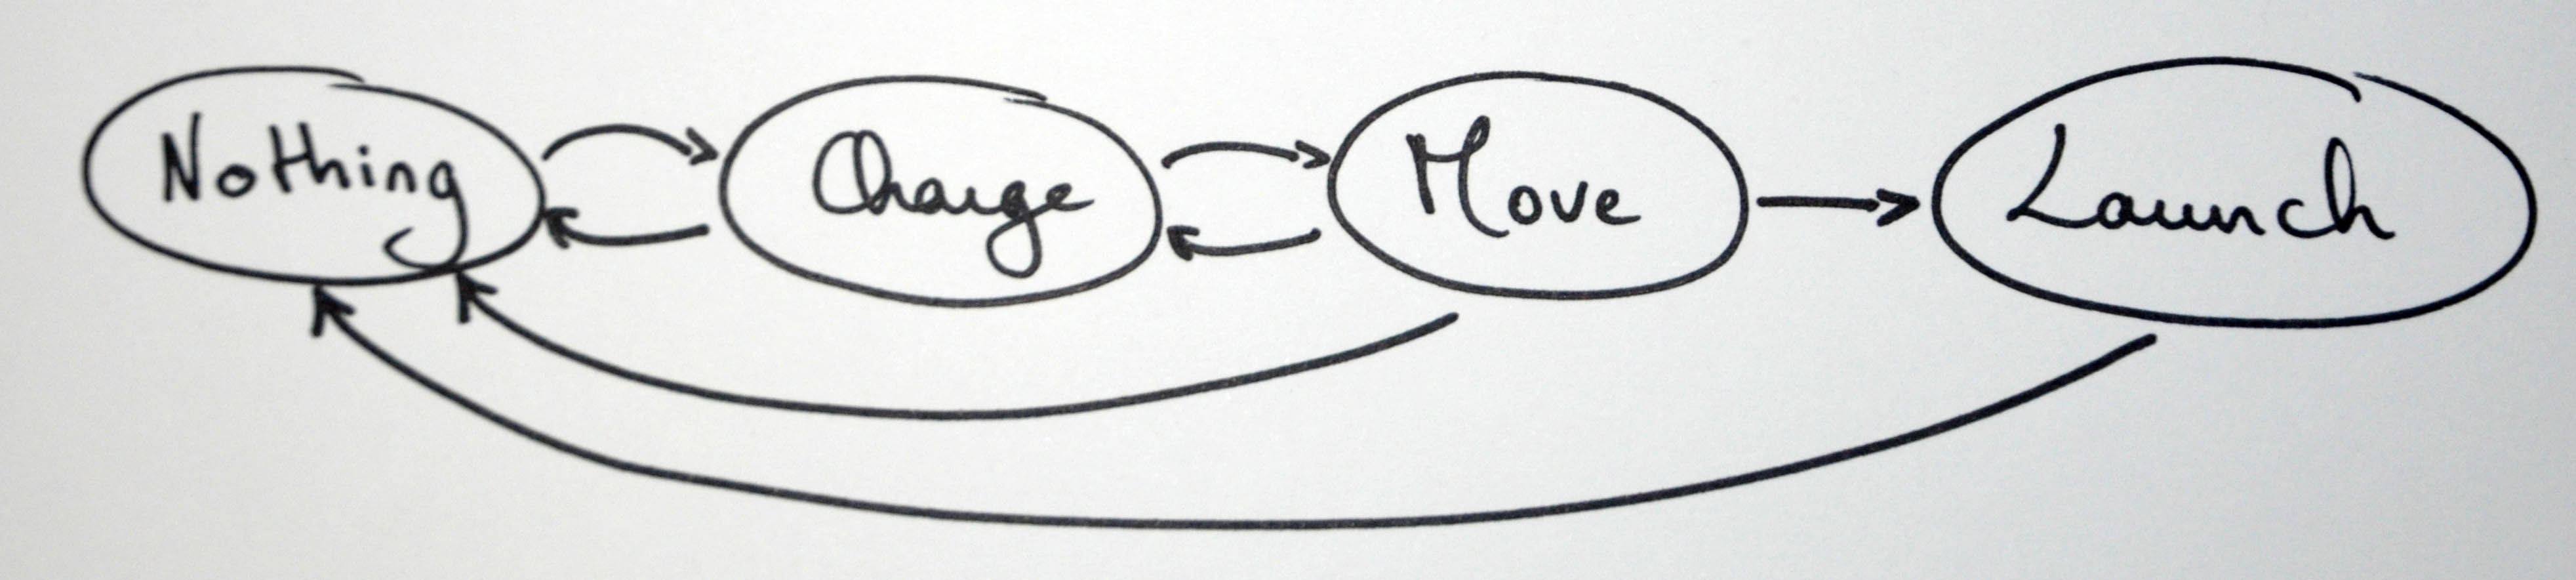 Nothing Charge Move Launch